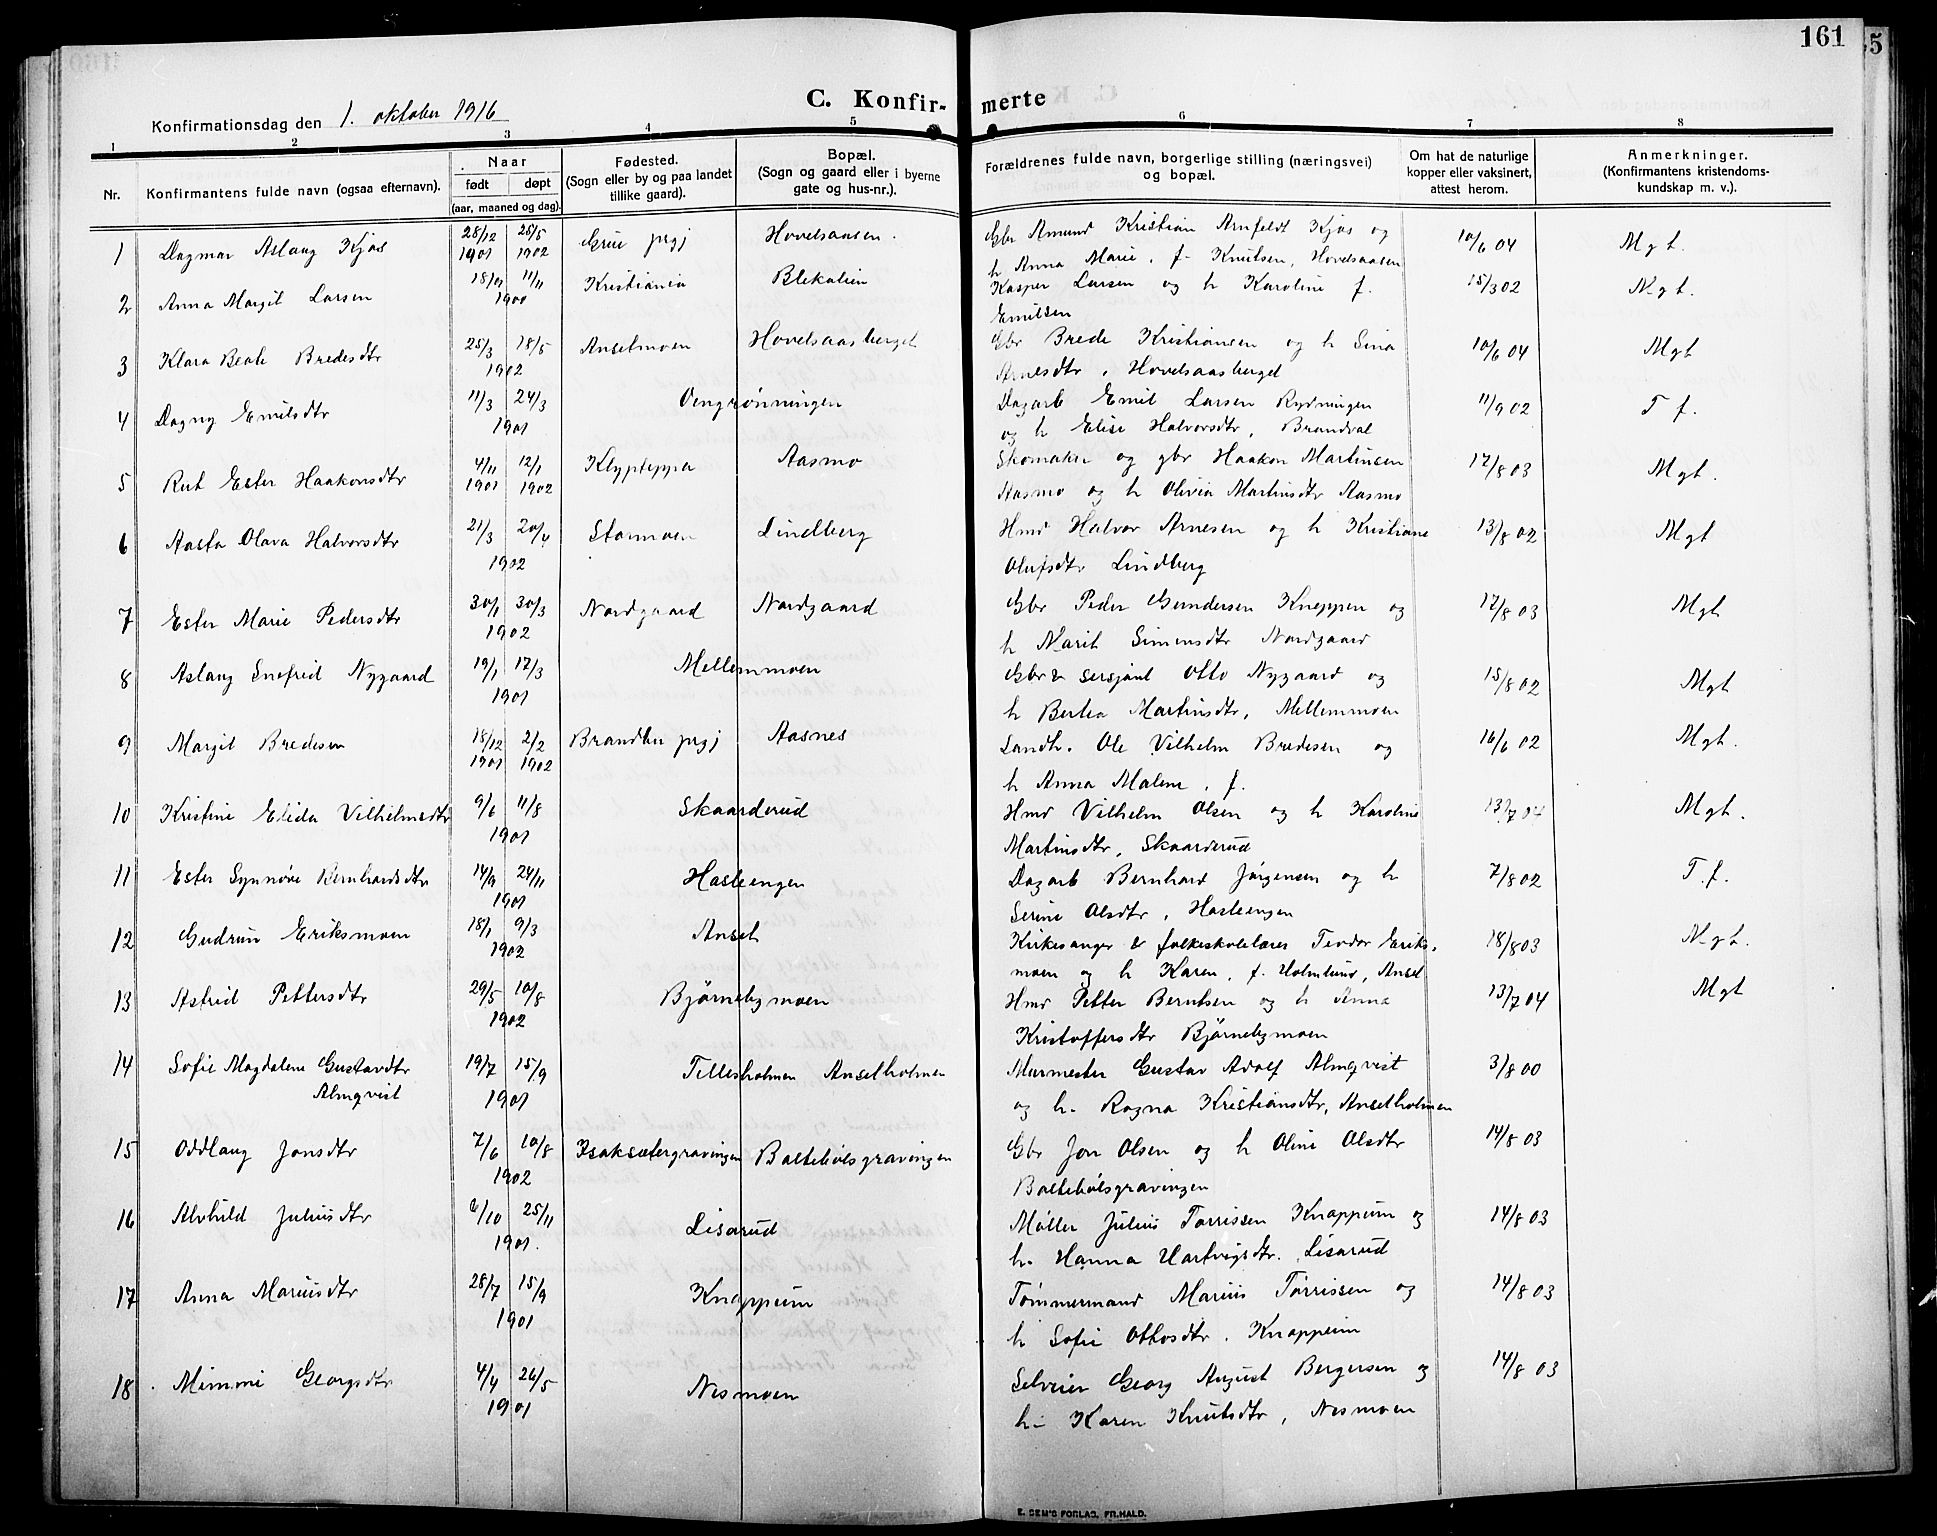 161
5
C. Konfir- merte
Konfirmationsdag den 1. oktober 1916
1 2 3 4 5 6 7 8
Nr. Konfirmantens fulde navn (ogsaa efternavn). Naar født døpt (aar, maaned og dag). Fødested. (Sogn eller by og paa landet tillike gaard). Bopæl. (Sogn og gaard eller i byerne gate og hus-nr.). Forældrenes fulde navn, borgerlige stilling (næringsvei) og bopæl. Om hat de naturlige kopper eller vaksinert, attest herom. Anmerkninger. (Konfirmantens kristendoms- kundskap m. v.).
1 Dagmar Aslaug Kjos 28/12 1901 25/5 1902 Grue prgj Hovelsaasen. Gbr Amund Kristian Arnfeldt Kjos og 10/6 04 Mgt.
h Anna Marie, f. Knutsen, Hovelsaasen
2 Anna Margit Larsen 18/9 11/11 1900 Kristiania Blekalien Kasper Larsen og h Karoline f. 15/3 02 Mgt.
Emilsen
3 Klara Beate Bredesdtr 25/3 18/5 1902 Anselmoen Hovelsaasberget Gbr Brede Kristiansen og h Sina 10/6 04 Mgt
Arnesdtr, Hovelsaasberget
4 Dagny Emilsdtr 11/3 24/3 1901 Oengrønningen Dagarb Emil Larsen Rydningen 11/9 02 T f.
og h Elise Halvorsdtr, Brandval
5 Rut Ester Haakonsdtr 4/11 1901 12/1 1902 Klypteppa Aasmo Skomaker og gbr Haakon Martinsen 17/8 03 Mgt.
Aasmo og h Olivia Martinsdtr Aasmo
6 Aasta Olava Halvorsdtr 21/3 20/4 1902 Stormoen Lindberg Hmd Halvor Arnesen og h Kristiane 13/8 02 Mgt
Olufsdtr Lindberg
7 Ester Marie Pedersdtr 30/1 30/3 1902 Nordgaard Nordgaard Gbr Peder Gundersen Kneppen og 17/8 03 Mgt
h Marit Simensdtr Nordgaard
8 Aslaug Snefrid Nygaard 19/1 17/3 1901 Mellemmoen Gbr & sersjant Otto Nygaard og 15/8 02 Mgt
h Bertea Martinsdtr, Mellemmoen
9 Margit Bredesen 18/12 1901 2/2 1902 Brandbu prgj Aasnes Landh. Ole Vilhelm Bredesen og 16/6 02 Mgt.
h Anna Malene, f.
10 Kristine Elida Vilhelmsdtr 9/6 11/8 1901 Skaarderud Hmd Vilhelm Olsen og h Karoline 13/7 04 Mgt.
Martinsdtr, Skaarderud
11 Ester Synnøve Bernhardsdtr 14/9 24/11 1901 Hasleengen Dagarb Bernhard Jørgensen og h 7/8 02 T.f.
Serine Olsdtr, Hasleengen
12 Gudrun Eriksmoen 18/1 9/3 1902 Anset Kirkesanger & folkeskolelærer Teodor Eriks- 18/8 03 Mgt.
moen og h Karen, f. Holmlund, Ansel
13 Astrid Pettersdtr 29/5 10/8 1902 Bjørnebymoen Hmd Petter Berntsen og h Anna 13/7 04 Mgt
Kristoffersdtr Bjørnebymoen
14 Sofie Magdalene Gustavdtr 19/7 15/9 1901 Tillesholmen Anselholmen Murmester Gustav Adolf Almqvist 3/8 00
Almqvist og h. Ragna Kristiansdtr, Anselholmen
15 Oddlaug Jonsdtr 7/6 10/8 1902 Isaksætergravingen Boltehølsgravingen Gbr Jon Olsen og h Oline Olsdtr 14/8 03
Boltehølsgravingen
16 Alvhild Juliusdtr 6/10 25/11 1901. Lisarud Møller Julius Tørrissen Knappum og 14/8 03
h. Hanna Hartvigsdtr. Lisarud
17 Anna Mariusdtr 28/7 15/9 1901 Knappum Tømmermand Marius Tørrissen og 14/8 03
h Sofie Ottosdtr. Knappum
18 Mimmi Georgsdtr 4/4 26/5 1901 Nesmoen Selveier Georg August Bergersen og 14/8 03
h. Karen Knutsdtr, Nesmoen
E. SEM'S FORLAG, FR.HALD.